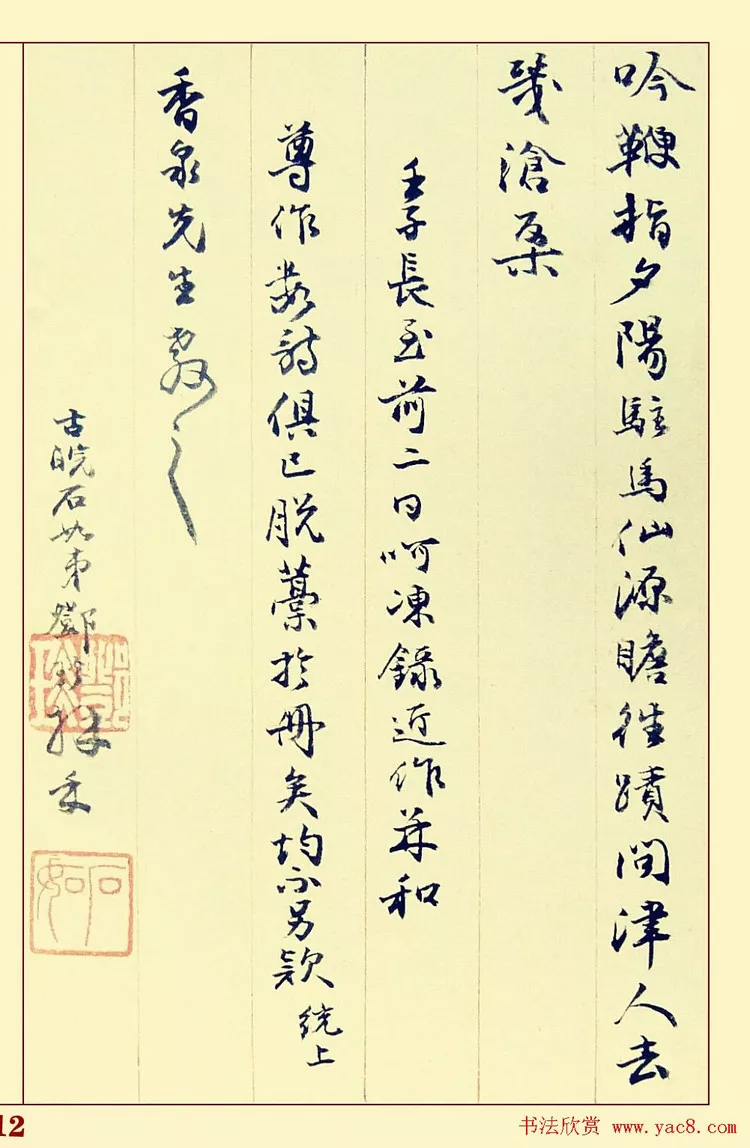 吟鞭指夕陽駐馬仙源瞻往蹟問津人去
幾滄桑
壬子長至前二日呵凍錄近作并和
尊作数詩俱已脱藁於冊矣均不另款 統上
香泉先生教之
古皖石如弟鄧琰
石如
12
书法欣赏 www.yac8.com